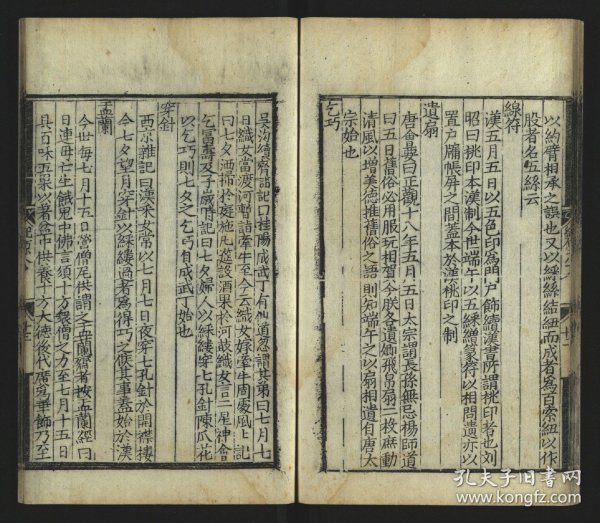 以約臂相承之誤也又以綵絲結紐而成者為百索紐以作
股者名五絲云
綵符
漢五月五日以五色印為門戶飾續漢書所謂桃印者也劉
昭曰桃印本漢制今世端午以五綵繒篆符以相問遺亦以
置戶牖帳屏之間蓋本於漢桃印之制
遺扇
唐會要曰正觀十八年五月五日太宗謂長孫無忌楊師道
曰五日舊俗必用服玩相賀今朕各遺卿飛白扇二枚庶動
清風以增美德推舊俗之語則知端午之以扇相遺自唐太
宗始也
乞巧
吳均續齊諧記曰桂陽成武丁有仙道忽謂其弟曰七月七
日織女當渡河暫詣牽牛至今云織女嫁牽牛周處風土記
曰七夕洒掃於庭施几筵設酒果於河鼓織女言二星神會
乞富壽及子歲時記曰七夕婦人以綵縷穿七孔針陳瓜花
以乞巧則七夕之乞巧自成武丁始也
穿針
西京雜記曰漢采女常以七月七日夜穿七孔針於開襟樓
今七夕望月穿針以綵縷過者為得巧之候其事蓋始於漢
盂蘭
今世每七月十五日營僧尼供謂之盂蘭齋者按盂蘭經曰
目連母亡生餓鬼中佛言須十方衆僧之力至七月十五日
具百味五果以著盆中供養十方大德後代廣為華飾乃至
孔夫子旧书网
www.kongfz.com